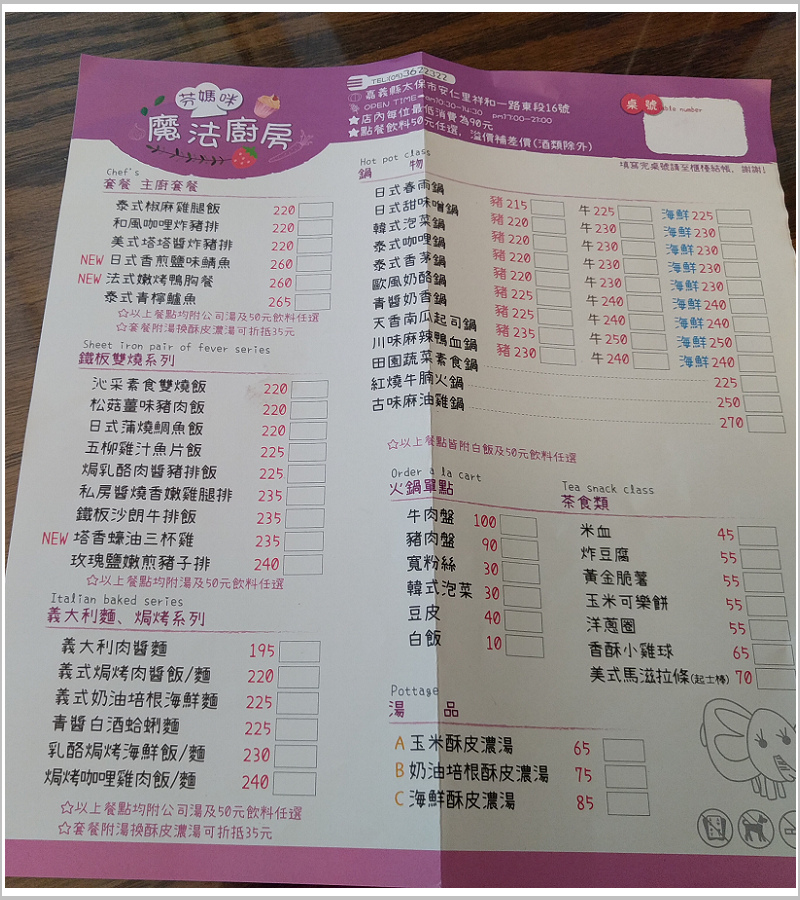 芬媽咪
魔法廚房
TEL:(05)3622322
嘉義縣太保市安仁里祥和一路東段16號
OPEN TIME am10:30-14:30 pm17:00-21:00
★店內每位最低消費為90元
★點餐飲料50元任選，溢價補差價(酒類除外)
桌號
table number
填寫完桌號請至櫃檯結帳，謝謝!
Chef's
套餐 主廚套餐
泰式椒麻雞腿飯 220
和風咖哩炸豬排 220
美式塔塔醬炸豬排 220
NEW 日式香煎鹽味鯖魚 260
NEW 法式嫩烤鴨胸餐 260
泰式青檸鱸魚 265
☆以上餐點均附公司湯及50元飲料任選
☆套餐附湯換酥皮濃湯可折抵35元
Sheet iron pair of fever series
鐵板雙燒系列
沁采素食雙燒飯 220
松菇薑味豬肉飯 220
日式蒲燒鯛魚飯 220
五柳雞汁魚片飯 225
焗乳酪肉醬豬排飯 225
私房醬燒香嫩雞腿排 235
鐵板沙朗牛排飯 235
NEW 塔香蠔油三杯雞 235
玫瑰鹽嫩煎豬子排 240
☆以上餐點均附湯及50元飲料任選
Italian baked series
義大利麵、焗烤系列
義大利肉醬麵 195
義式焗烤肉醬飯/麵 220
義式奶油培根海鮮麵 225
青醬白酒蛤蜊麵 225
乳酪焗烤海鮮飯/麵 230
焗烤咖哩雞肉飯/麵 240
☆以上餐點均附公司湯及50元飲料任選
☆套餐附湯換酥皮濃湯可折抵35元
Hot pot class
鍋 物
日式春雨鍋 豬215 牛225 海鮮225
日式甜味噌鍋 豬220 牛230 海鮮230
韓式泡菜鍋 豬220 牛230 海鮮230
泰式咖哩鍋 豬220 牛230 海鮮230
泰式香茅鍋 豬220 牛230 海鮮230
歐風奶酪鍋 豬225 牛240 海鮮240
青醬奶香鍋 豬225 牛240 海鮮240
天香南瓜起司鍋 豬235 牛250 海鮮250
川味麻辣鴨血鍋 豬230 牛240 海鮮240
田園蔬菜素食鍋 225
紅燒牛腩火鍋 250
古味麻油雞鍋 270
☆以上餐點皆附白飯及50元飲料任選
Order a la cart
火鍋單點
牛肉盤 100
豬肉盤 90
寬粉絲 30
韓式泡菜 30
豆皮 40
白飯 10
Tea snack class
茶食類
米血 45
炸豆腐 55
黃金脆薯 55
玉米可樂餅 55
洋蔥圈 55
香酥小雞球 65
美式馬滋拉條(起士棒) 70
Pottage
湯 品
A 玉米酥皮濃湯 65
B 奶油培根酥皮濃湯 75
C 海鮮酥皮濃湯 85